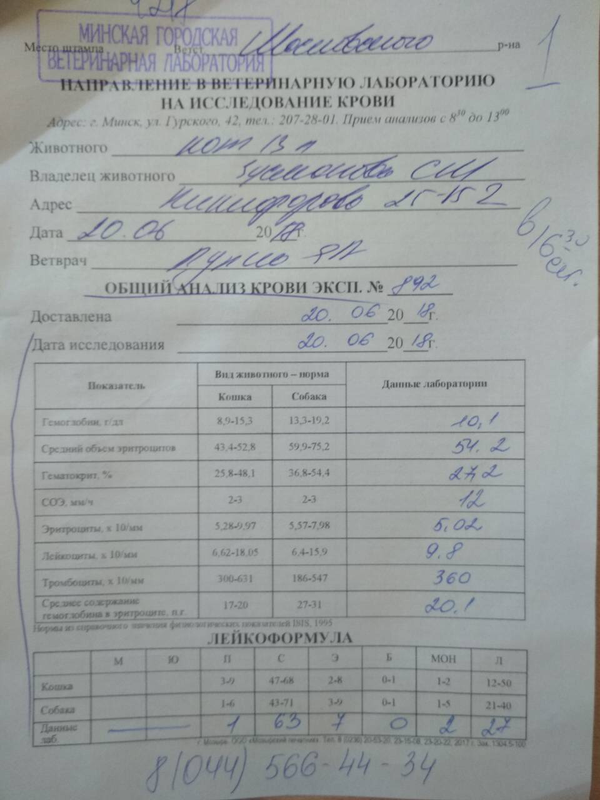 4218
МИНСКАЯ ГОРОДСКАЯ
ВЕТЕРИНАРНАЯ ЛАБОРАТОРИЯ
Место штампа Ветст. Московского р-на
1
НАПРАВЛЕНИЕ В ВЕТЕРИНАРНУЮ ЛАБОРАТОРИЮ
НА ИССЛЕДОВАНИЕ КРОВИ
Адрес: г. Минск, ул. Гурского, 42, тел.: 207-28-01. Прием анализов с 8³⁰ до 13⁰⁰
Животного кот 13 л
Владелец животного
Адрес 25-152
Дата 20.06 2018г.
в 16³⁰
Ветврач
ОБЩИЙ АНАЛИЗ КРОВИ ЭКСП. № 892
Доставлена 20. 06 2018г.
Дата исследования 20. 06 2018г.
Показатель Вид животного – норма Данные лаборатории
Кошка Собака
Гемоглобин, г/дл 8,9-15,3 13,3-19,2 10,1
Средний объем эритроцитов 43,4-52,8 59,9-75,2 54.2
Гематокрит, % 25,8-48,1 36,8-54,4 27,2
СОЭ, мм/ч 2-3 2-3 12
Эритроциты, х 10/мм 5,28-9,97 5,57-7,98 5,02
Лейкоциты, х 10/мм 6,62-18,05 6,4-15,9 9.8
Тромбоциты, х 10/мм 300-631 186-547 360
Среднее содержание гемоглобина в эритроците, п.г. 17-20 27-31 20.1
Нормы из справочного значения физиологических показателей ISIS, 1995
ЛЕЙКОФОРМУЛА
М Ю П С Э Б МОН Л
Кошка 3-9 47-68 2-8 0-1 1-2 12-50
Собака 1-6 43-71 3-9 0-1 1-5 21-40
Данные лаб. — 1 63 7 0 2 27
8 (044) 566-44-34